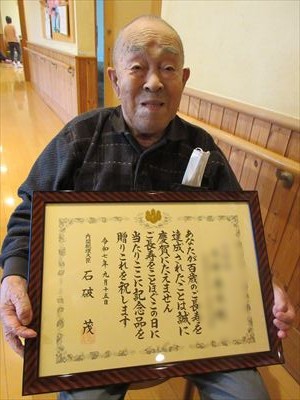 あなたが百歳のご長寿を
達成されたことは誠に
慶賀にたえません
ご長寿をことほぐこの日に
当たりここに記念品を
贈りこれを祝します
令和七年九月十五日
内閣総理大臣 石破茂